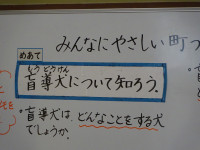 みんなにやさしい町
めあて
もうどうけん
盲導犬について知ろう。
盲導犬は、どんなことをする犬
でしょうか。